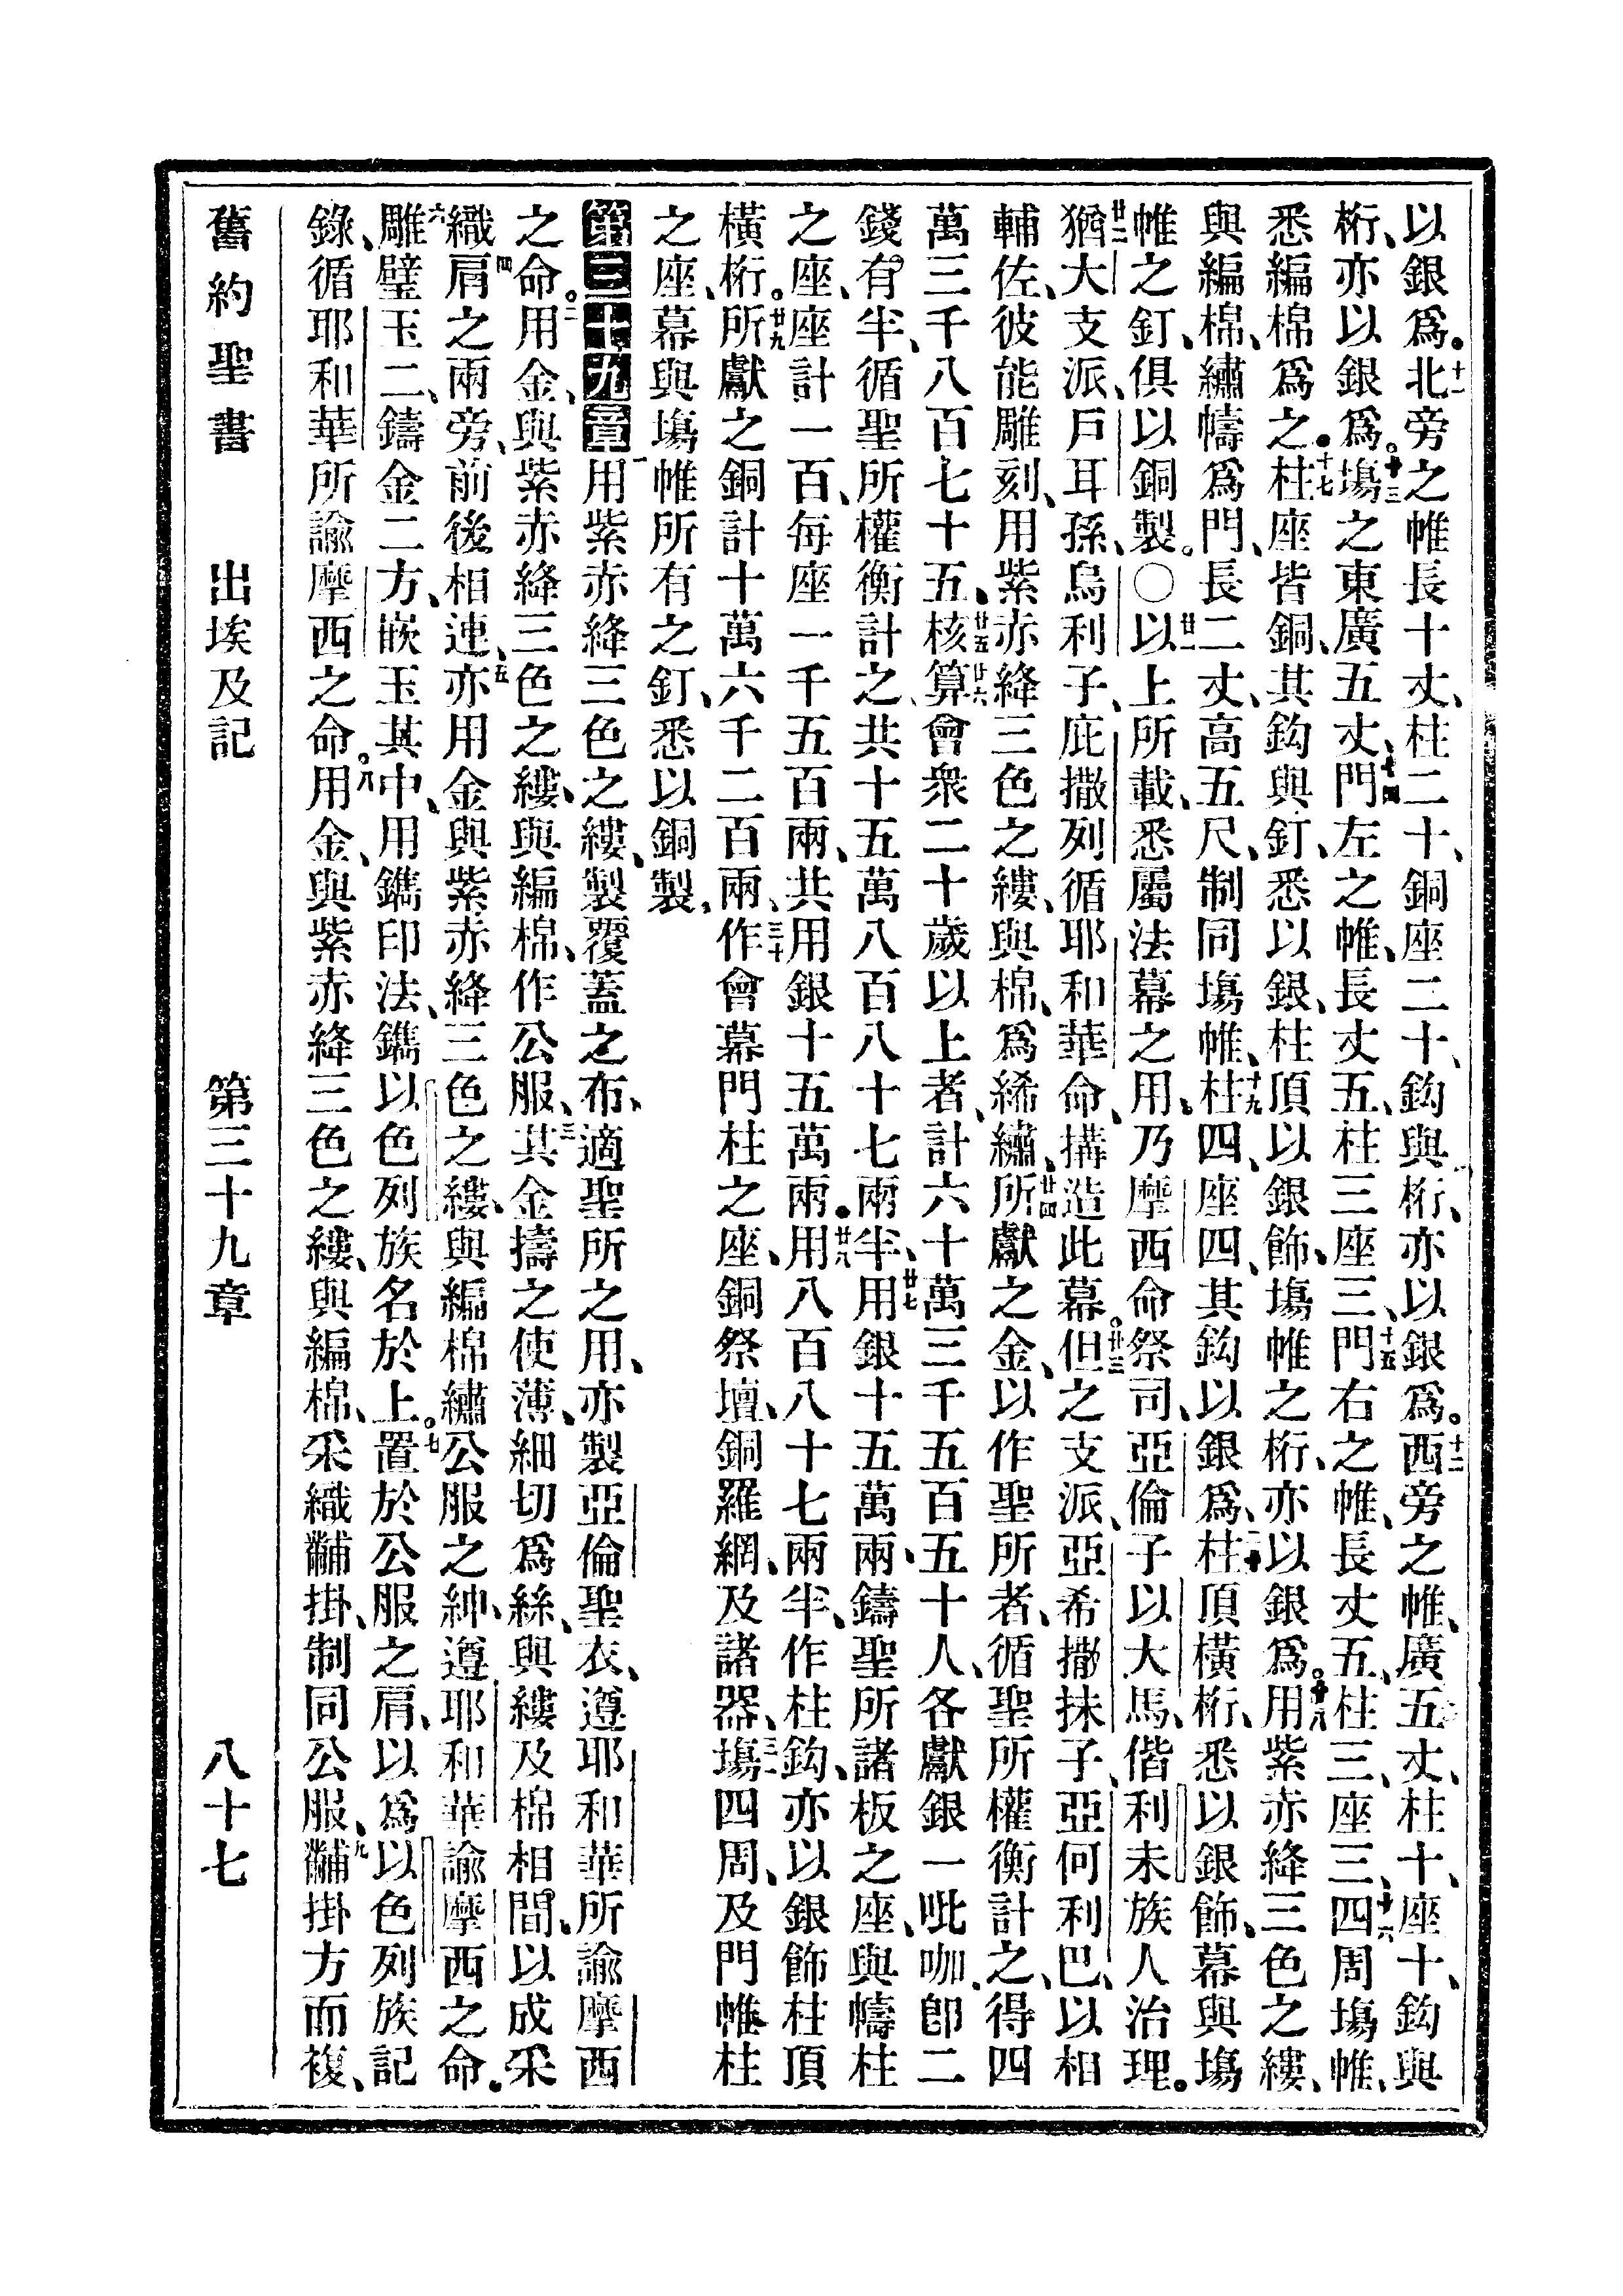 以銀爲。十一北旁之帷長十丈、柱二十、銅座二十、鈎與桁、亦以銀爲。十二西旁之帷、廣五丈、柱十、座十、鈎與
桁、亦以銀爲。十三塲之東廣五丈、十四門左之帷、長丈五、柱三座三、十五門右之帷、長丈五、柱三、座三、十六四周塲帷、
悉編棉爲之。十七柱座皆銅、其鈎與釘、悉以銀、柱頂以銀飾、塲帷之桁、亦以銀爲。十八用紫赤絳三色之縷、
與編棉、繡幬爲門、長二丈、高五尺、制同塲帷、十九柱四、座四、其鈎以銀爲、二十柱頂橫桁、悉以銀飾、幕與塲
帷之釘、俱以銅製。〇廿一以上所載、悉屬法幕之用、乃摩西命祭司、亞倫子以大馬、偕利未族人治理。
廿二猶大支派、戶耳孫、烏利子、庇撒列循耶和華命、搆造此幕。廿三但之支派、亞希撒抹子、亞何利巴、以相
輔佐、彼能雕刻、用紫赤絳三色之縷、與棉、爲絺繡、廿四所獻之金、以作聖所者、循聖所權衡計之、得四
萬三千八百七十五、廿五核廿六算會衆二十歲以上者、計六十萬三千五百五十人、各獻銀一吡咖、卽二
錢有半、循聖所權衡計之、共十五萬八百八十七兩半、廿七用銀十五萬兩、鑄聖所諸板之座、與幬柱
之座、座計一百、每座一千五百兩、共用銀十五萬兩。廿八用八百八十七兩半、作柱鈎、亦以銀飾柱頂
橫桁。廿九所獻之銅計十萬六千二百兩、三十作會幕門柱之座、銅祭壇、銅羅網、及諸器、三一塲四周、及門帷柱
之座、幕與塲帷所有之釘、悉以銅製、
第三十九章一用紫赤絳三色之縷、製覆蓋之布、適聖所之用、亦製亞倫聖衣、遵耶和華所諭摩西
之命。二用金、與紫赤絳三色之縷、與編棉、作公服、三其金擣之使薄、細切爲絲、與縷及棉相間、以成采
織四肩之兩旁、前後相連、五亦用金與紫赤絳三色之縷、與編棉繡公服之紳、遵耶和華諭摩西之命。
六雕璧玉二、鑄金二方、嵌玉其中、用鐫印法、鐫以色列族名於上。七置於公服之肩、以爲以色列族記
錄、循耶和華所諭摩西之命。八用金、與紫赤絳三色之縷、與編棉、采織黼掛、制同公服、九黼掛方而複、
舊約聖書 出埃及記 第三十九章 八十七